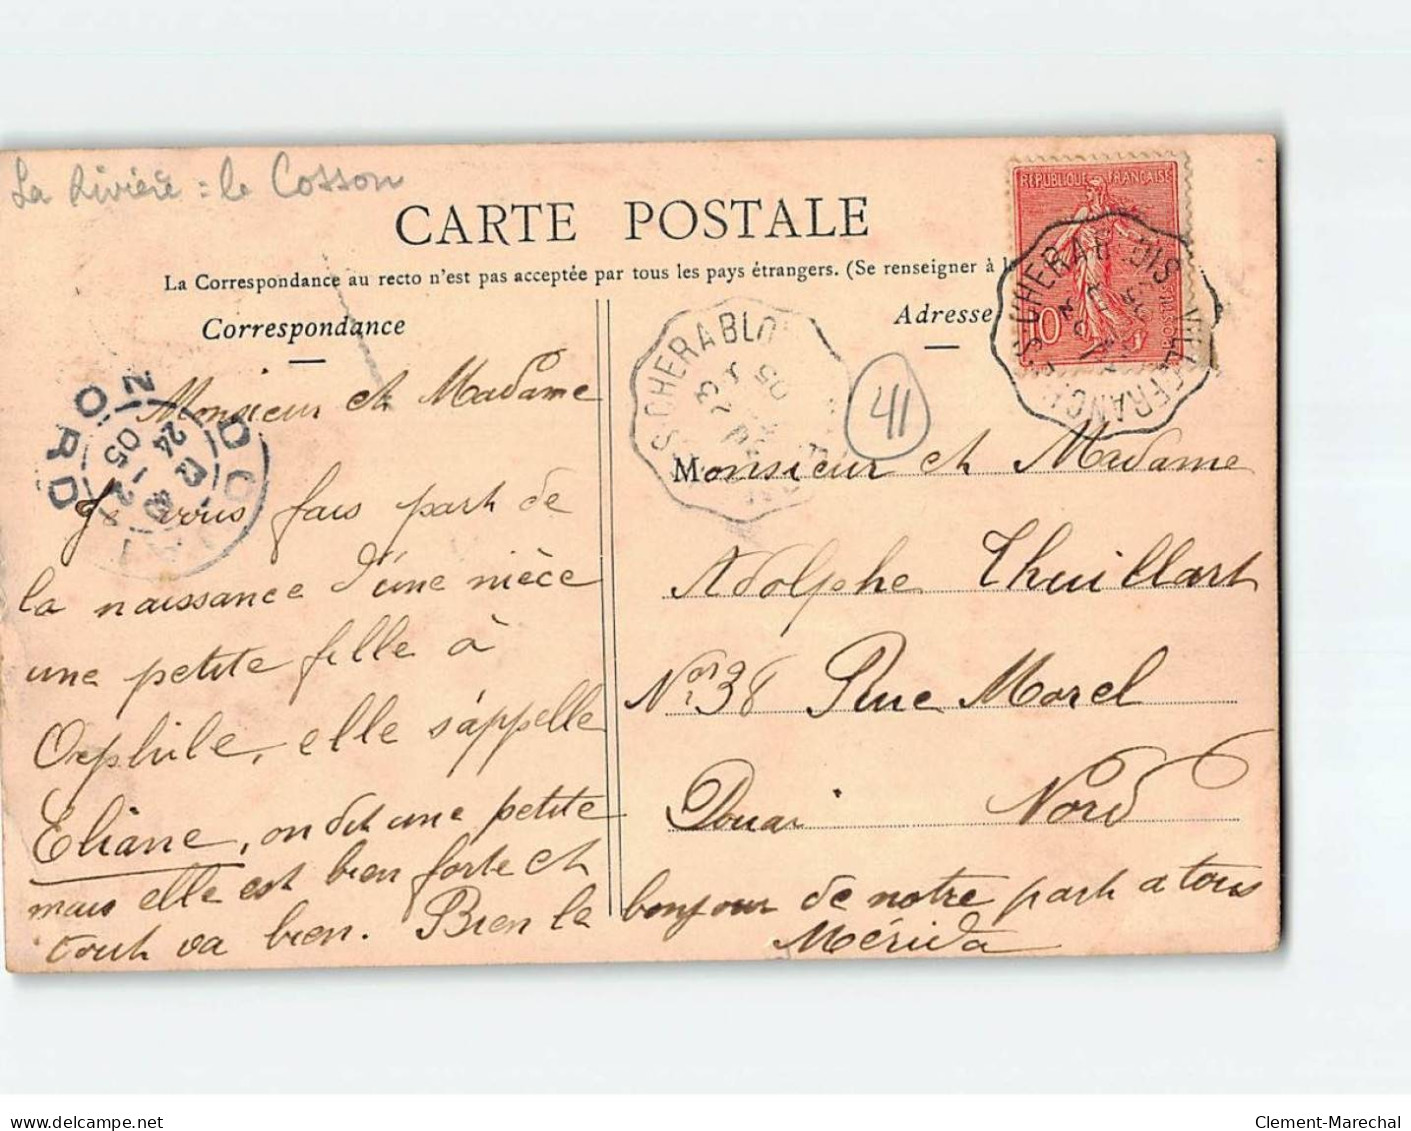 La Rivière = le Cosson
CARTE POSTALE
La Correspondance au recto n'est pas acceptée par tous les pays étrangers. (Se renseigner à l
Correspondance
Adresse
REPUBLIQUE FRANÇAISE
POSTES
10
VILLEFRANCHE S CHER A BLOIS
S CHER A BLOIS
23
05
41
DOUAI
NORD
24 - 2
05
Monsieur et Madame
Je vous fais part de
la naissance d'une nièce
une petite fille à
Orphile, elle s'appelle
Eliane, on dit une petite
mais elle est bien forte et
tout va bien. Bien le bonjour de notre part a tous
Mérida
Monsieur et Madame
Adolphe Thuillart
No 38 Rue Morel
Douai Nord
delcampe.net
Clement-Marechal